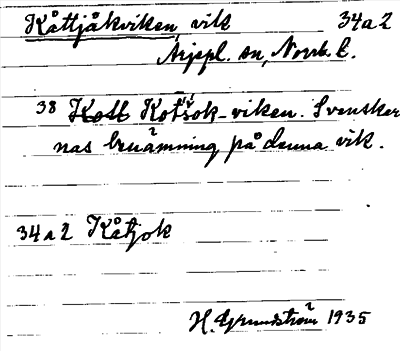 Kåttjåkviken, vik 34a2
Arjepl. sn, Norrb. l.
38 Kott Kotsok-viken. Svenskar
nas benämning på denna vik.
34a2 Kåtjok
H. Grundström 1935